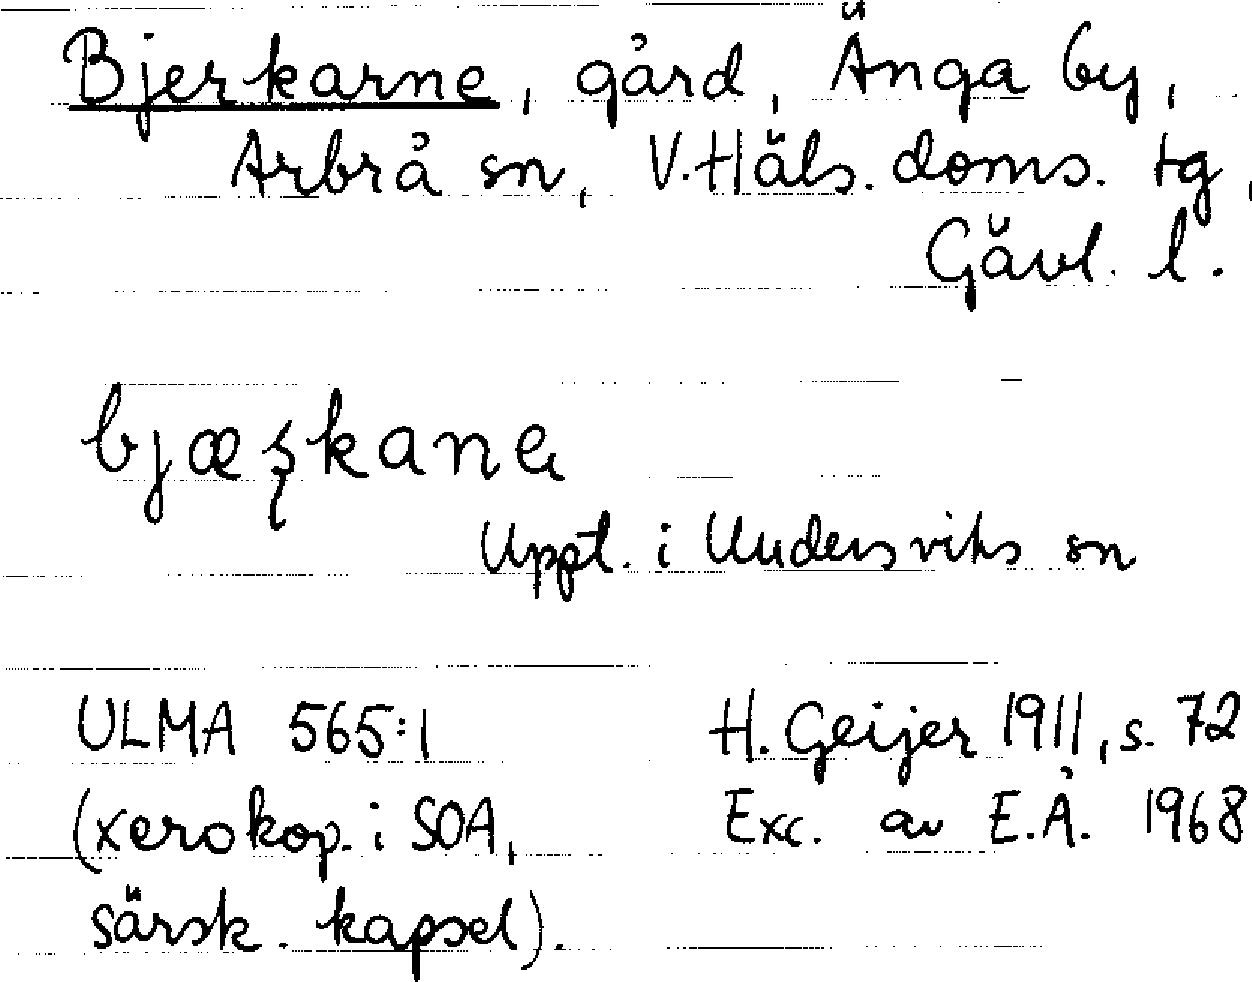 Bjerkarne, gård, Änga by,
Arbrå sn, V. Häls. doms. tg,
Gävl. l.
Uppt. i Undersviks sn
ULMA 565:1
H. Geijer 1911, s. 72
(xerokop. i SOA,
Exc. av E.Å. 1968
särsk. kapsel).